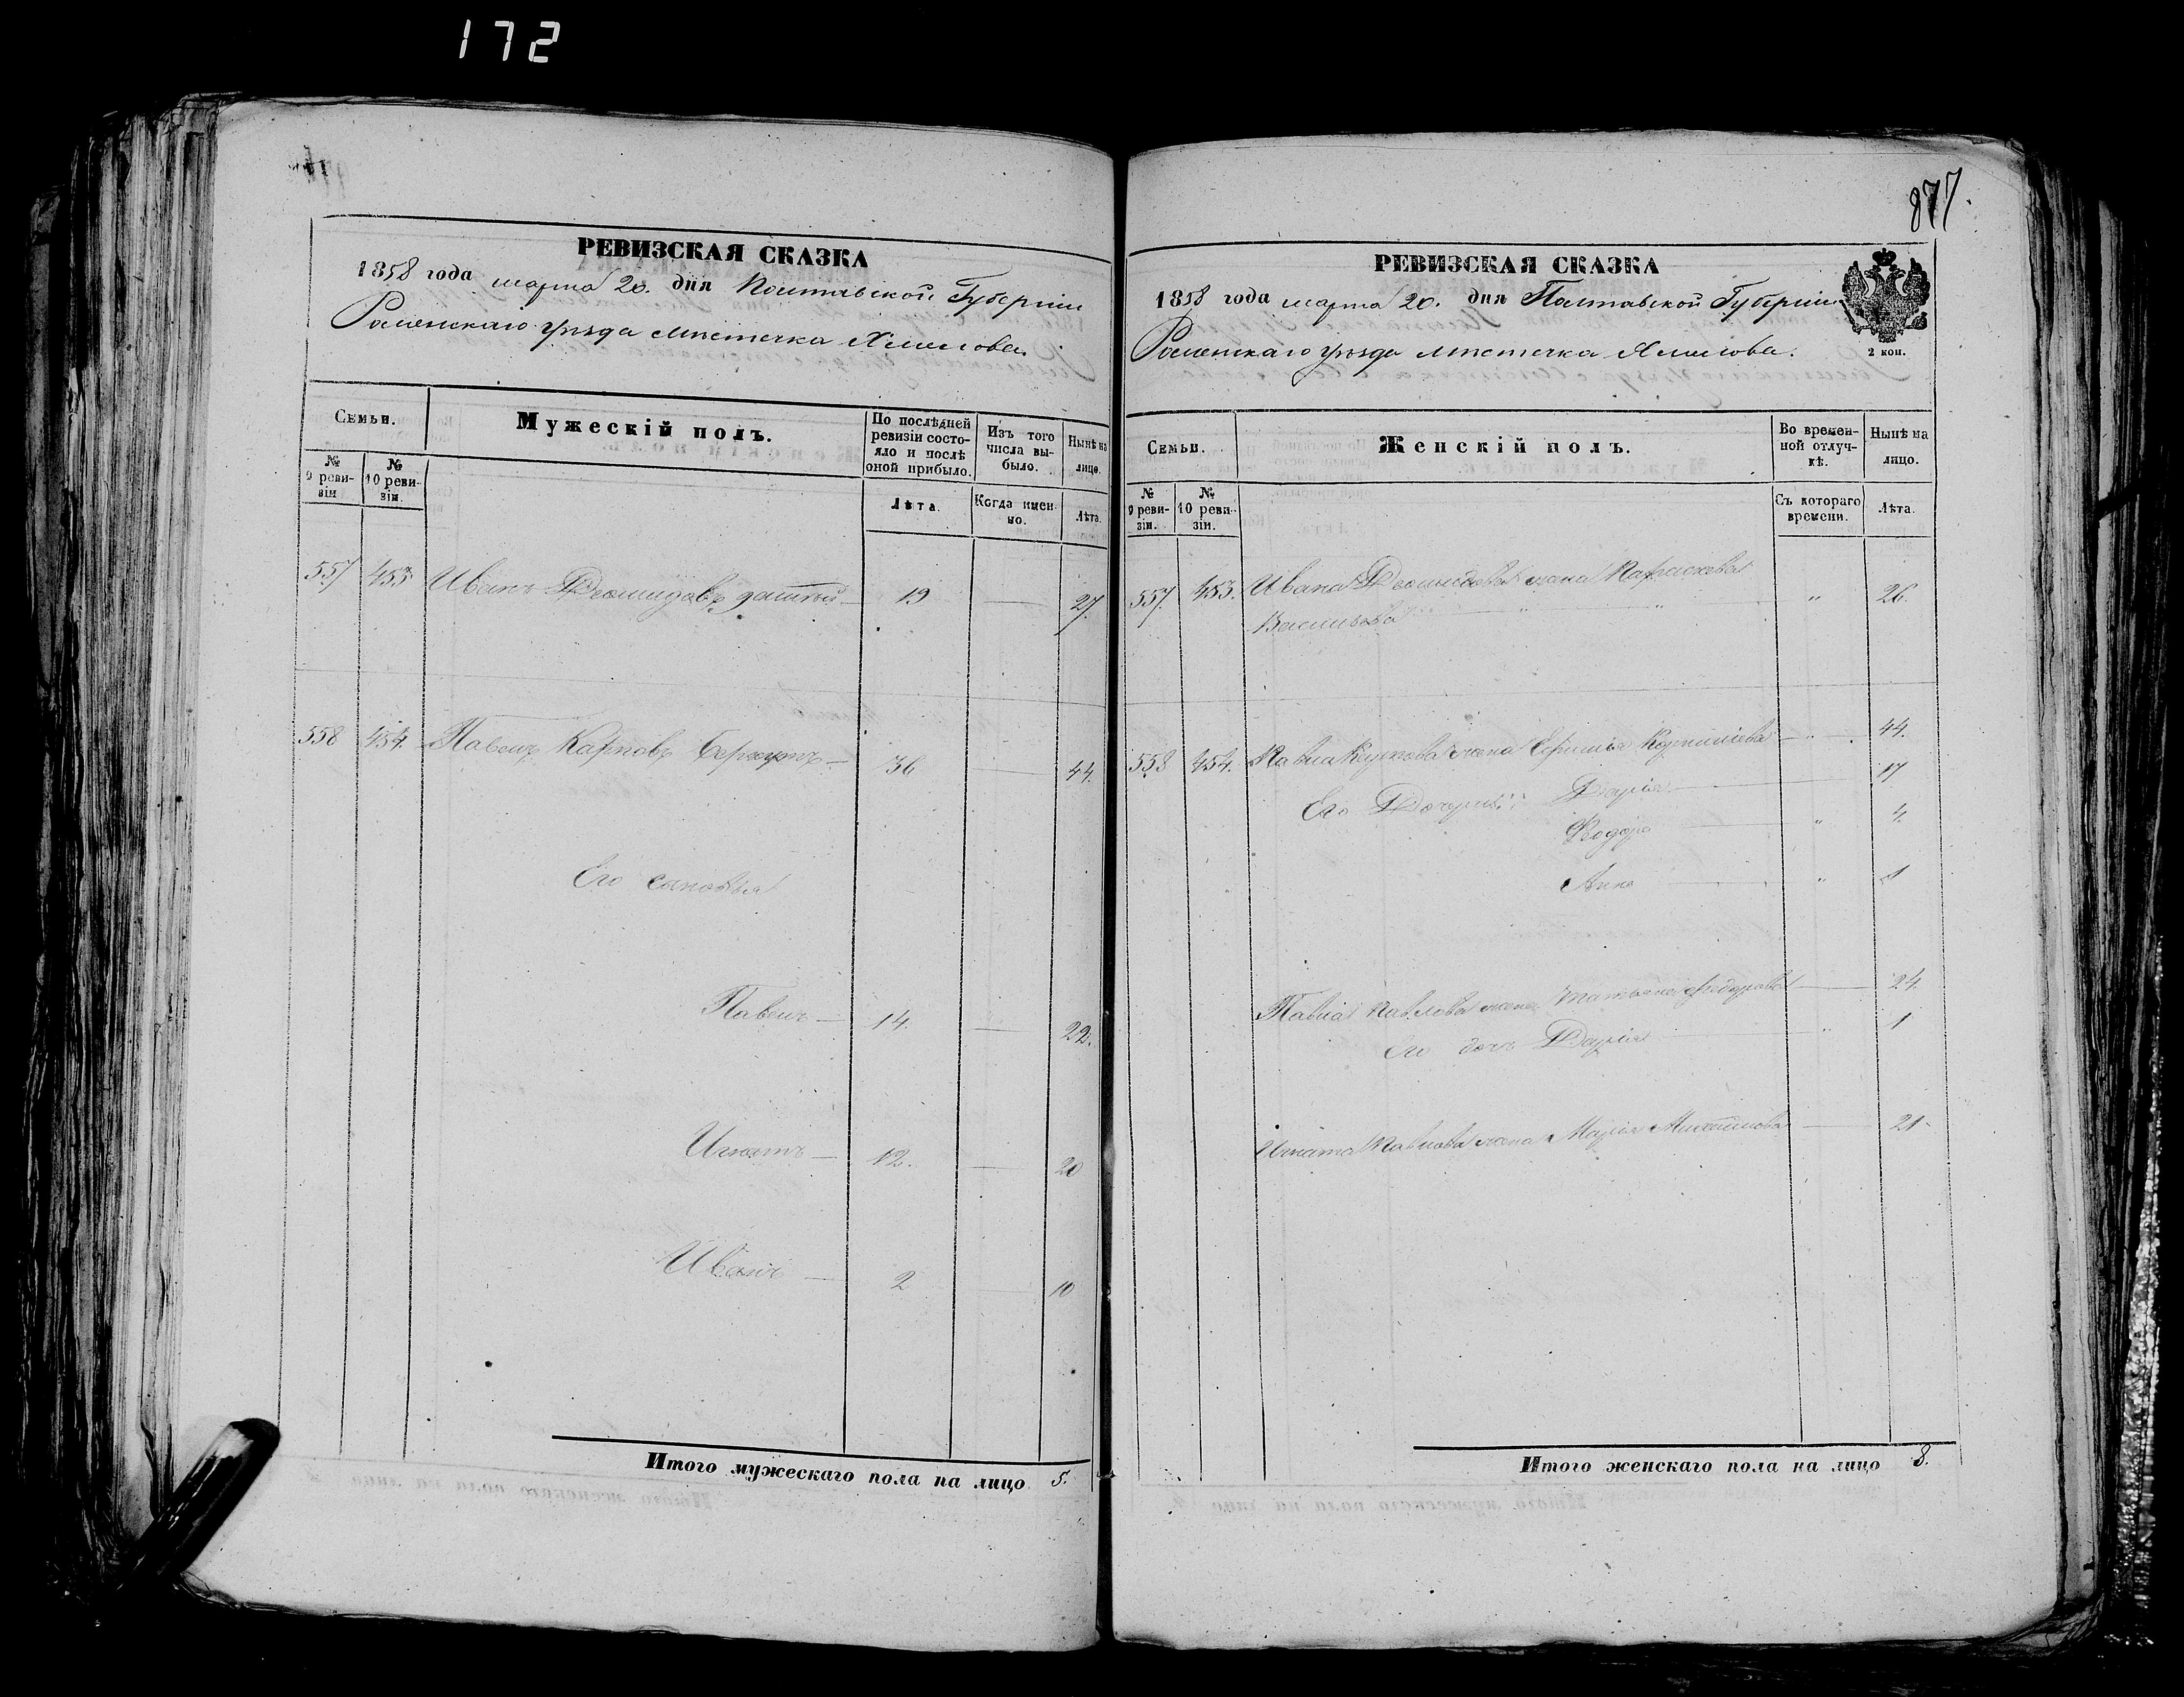 172
РЕВИЗСКАЯ СКАЗКА
1858 года марта 20. дня Полтавской Губерніи
Роменскаго уѣзда мѣстечка Хмелова.
Семьи.
Мужескій полъ.
По послѣдней ревизіи состояло и послѣ оной прибыло.
Изъ того числа выбыло.
Нынѣ на лицо.
№ 9 ревизіи
№ 10 ревизіи.
Лѣта.
Когда именно.
Лѣта.
557 453 Иванъ Деомидовъ 19 27.
558 454. Павелъ Карповъ 36 44.
Его сыновья
Павелъ 14. 22.
Игнатъ 12. 20
Иванъ 2 10
Итого мужескаго пола на лицо 5.
877.
РЕВИЗСКАЯ СКАЗКА
1858 года марта 20. дня Полтавской Губерніи
Роменскаго уѣзда мѣстечка Хмелова.
2 коп.
Семьи.
Женскій полъ.
Во временной отлучкѣ.
Нынѣ на лицо.
№ 9 ревизіи.
№ 10 ревизіи.
Съ котораго времени.
Лѣта.
557. 453. Ивана Деомидова жена Параскева " 26.
Васильева
558 454. Павла Карпова жена Ефимія " 44.
Его Дочери: Дарія 17
Феодора " 4.
Анна " 1
Павла Павлова жена Татьяна Федорова 24.
Его дочь Дарія " 1
Игната Павлова жена Марія Михайлова 21
Итого женскаго пола на лицо 8.